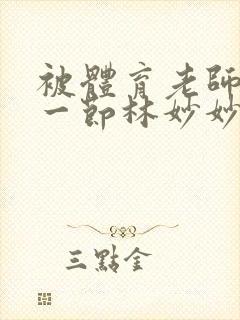 被體育老師
一節林妙妙
三點金